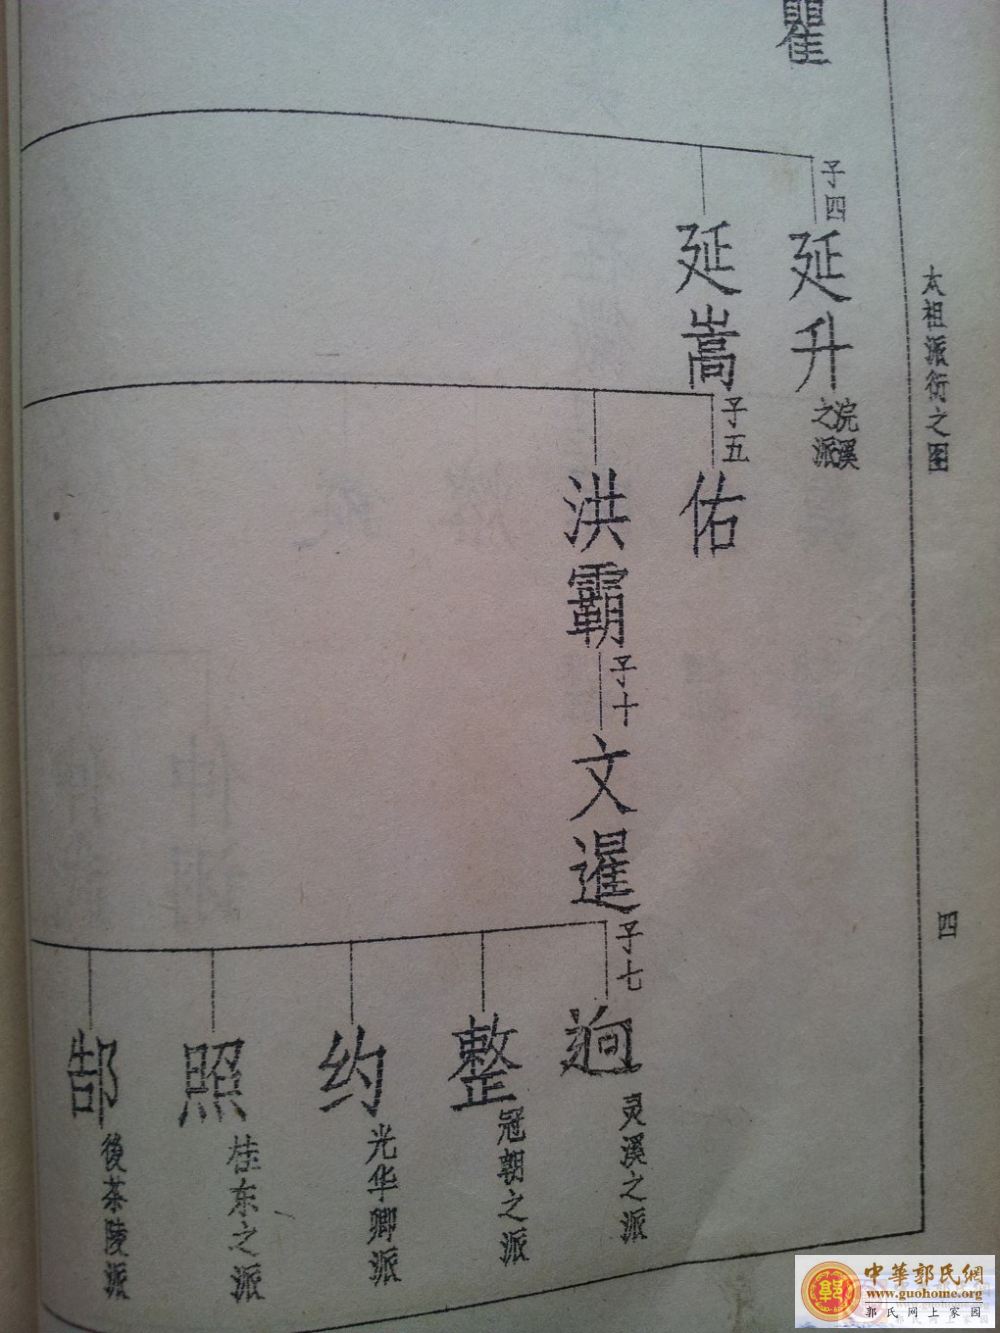 太祖派衍之图
四
瞿
子四
延升
浣溪之派
延嵩
子五
佑
洪霸
子十
文暹
子七
迿
灵溪之派
整
冠朝之派
约
光华卿派
照
桂东之派
郜
後茶陵派
中華郭氏網
www.guohome.org
郭氏网上家园